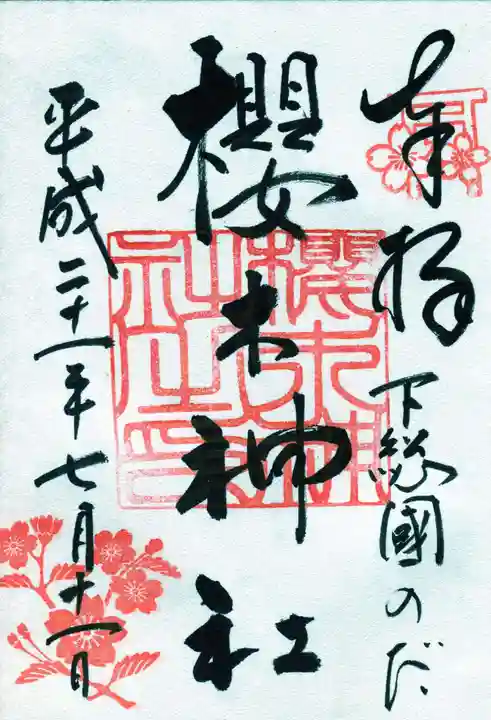 奉拝
下総國のだ
櫻木神社
櫻木神社之印
平成二十一年七月十一日